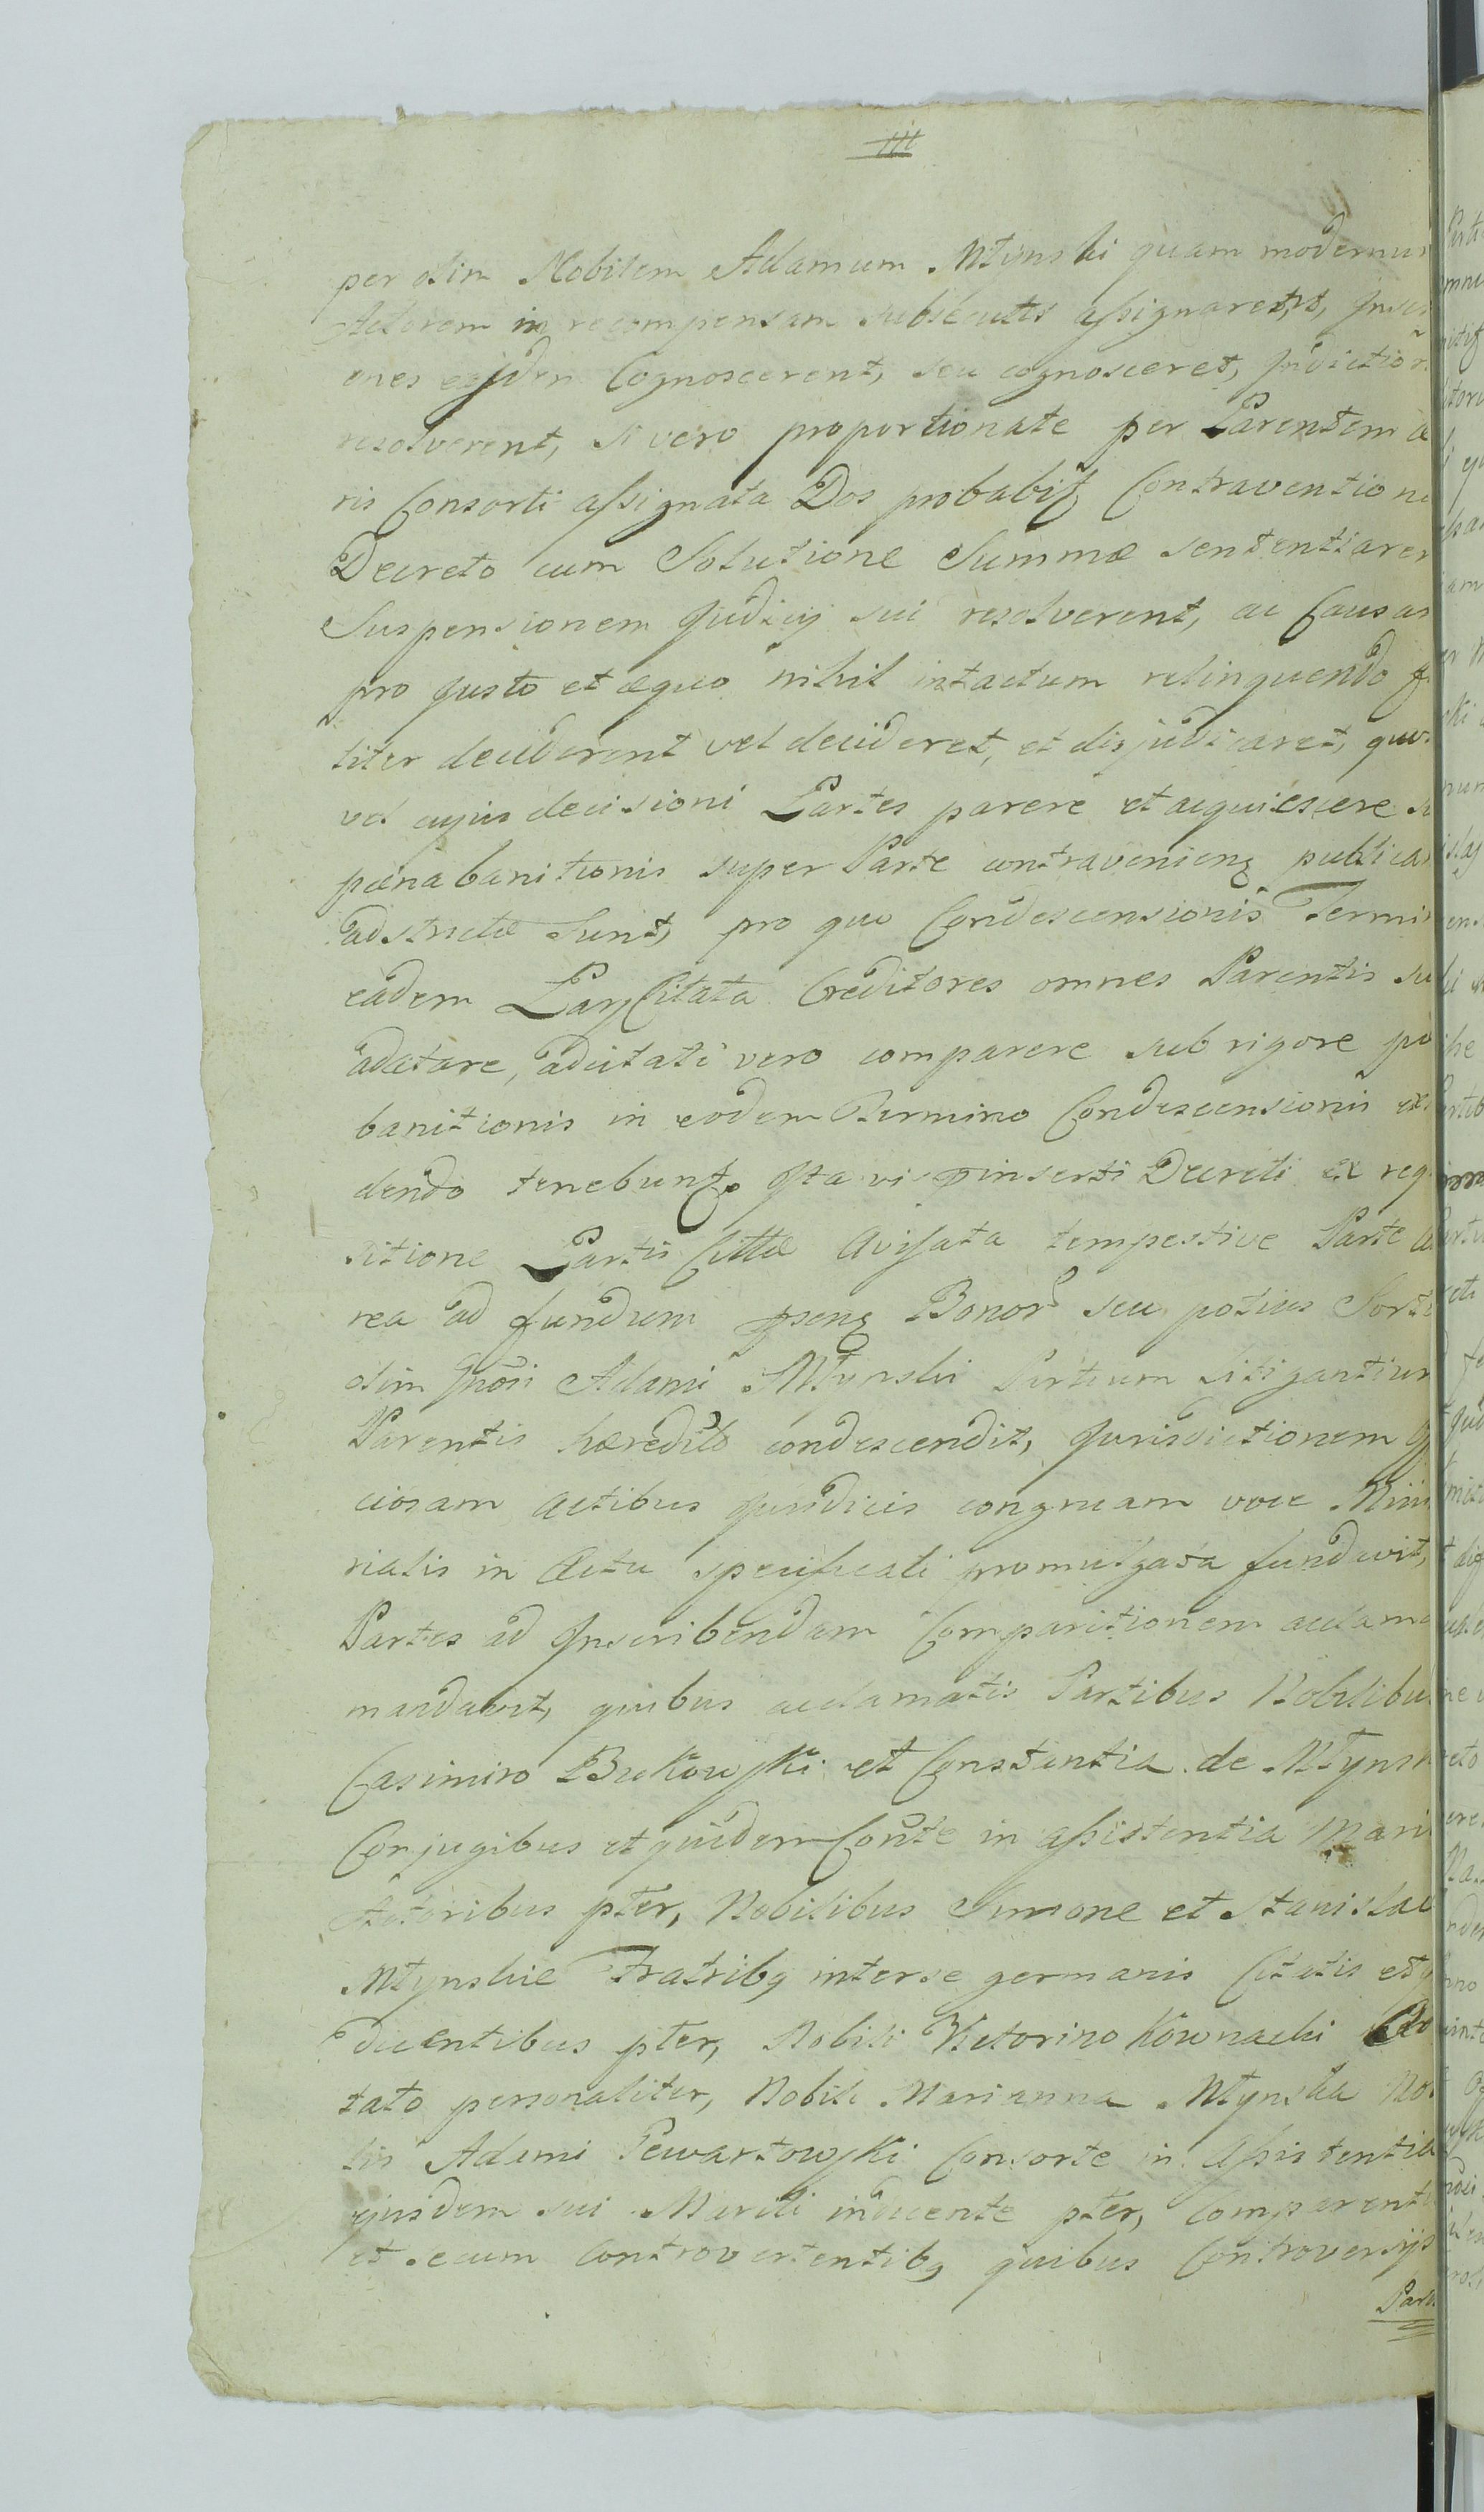 III
per olim Nobilem Adamum Młynski quam modernum
Actorem in recompensam subsecutis assignarent,
ones ejusdem Cognoscerent, seu cognosceret,
resolverent, si vero proportionate per Parentem
ris Consorti assignata Dos probabit Contraventione
Decreto cum Solutione Summæ sententiaren
Suspensionem Judicij sui resolverent, ac Causas
pro justo et æquo nihil intactum relinquendo
liter deciderent vel decideret, et disjudicaret, quo
vel cujus decisioni Partes parere et acquiescere
pæna banitionis super Parte contravenienᶎ publican
adstrictæ Sunt, pro quo Condescensionis Termin
eadem Pars Citata Creditores omnes Parentis su
adcitare, adcitati vero comparere sub rigore pœ
banitionis in eodem Termino Condescensionis
dendo tenebuntᶎ Ita vi præinserti Decreti ex reqi
sitione Partis Cittæ Avisata tempestive Parte
rea ad fundum Bonor seu potius Sorti
olim Gnosi Adami Młynski Partium litigantium
Parentis hæredit condescendit, Jurisdictionem
ciosam Actibus Juridicis congruam voce Mini
rialis in Actu specificati promulgata fundavit,
Partes ad Inscribendam Comparitionem acclama
mandavit, quibus acclamatis Partibus Nobilibus
Casimiro Bukowski et Constantia de Młynsk
Conjugibus et quidem Conte in assistentia Mari
Actoribus pter, Nobilibus Simone et Stanislao
Młynskie Fratribᶎ interse germanis Citatis et
ducentibus pter, Nobili Victorino Kownacki
tato personaliter, Nobili Marianna Młynska
lis Adami Pewartowski Consorte in Assistentia
ejusdem sui Mariti inducente pter, comparenti
et secum Controvertentibᶎ quibus Controversijs
Parti